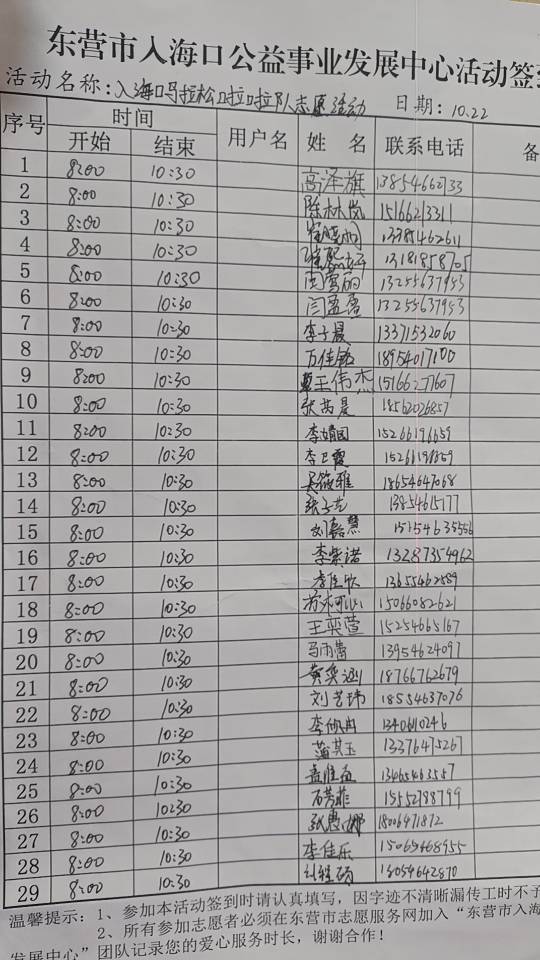 东营市入海口公益事业发展中心活动签到
活动名称：入海口马拉松啦啦队志愿活动 日期：10.22
序号 时间 用户名 姓 名 联系电话 备
开始 结束
1 8:00 10:30 高泽旗 13854662733
2 8:00 10:30 陈林岚 15166213311
3 8:00 10:30 13385462611
4 8:00 10:30 13181858705
5 8:00 10:30 闫莺丽 13255637953
6 8:00 10:30 闫盈盈 13255637953
7 8:00 10:30 李子晨 13371532060
8 8:00 10:30 万佳铭 18954017100
9 8:00 10:30 王伟杰 15166277607
10 8:00 10:30 张芮晨 18562026857
11 8:00 10:30 李婧园 15266196659
12 8:00 10:30 李卫霞
13 8:00 10:30 吴筱雅 18654647068
14 8:00 10:30 张子艺 13854615777
15 8:00 10:30 刘嘉慧
16 8:00 10:30 李紫诺 13287354962
17 8:00 10:30 李佳欣 13655462589
18 8:00 10:30 苏柯心 15066082621
19 8:00 10:30 王奕萱 15254665167
20 8:00 10:30 马雨蕾 13954624097
21 8:00 10:30 黄奕涵 18766762679
22 8:00 10:30 刘艺玮 18554637076
23 8:00 10:30 1340610246
24 8:00 10:30 蒲其玉 13376475267
25 8:00 10:30 13465463557
26 8:00 10:30 石芳菲 15552798799
27 8:00 10:30 张惠娜 18006471872
28 8:00 10:30 李佳乐 15065468955
29 8:00 10:30 13054642870
温馨提示：1、参加本活动签到时请认真填写，因字迹不清晰漏传工时不予
2、所有参加志愿者必须在东营市志愿服务网加入“东营市入海
发展中心”团队记录您的爱心服务时长，谢谢合作！